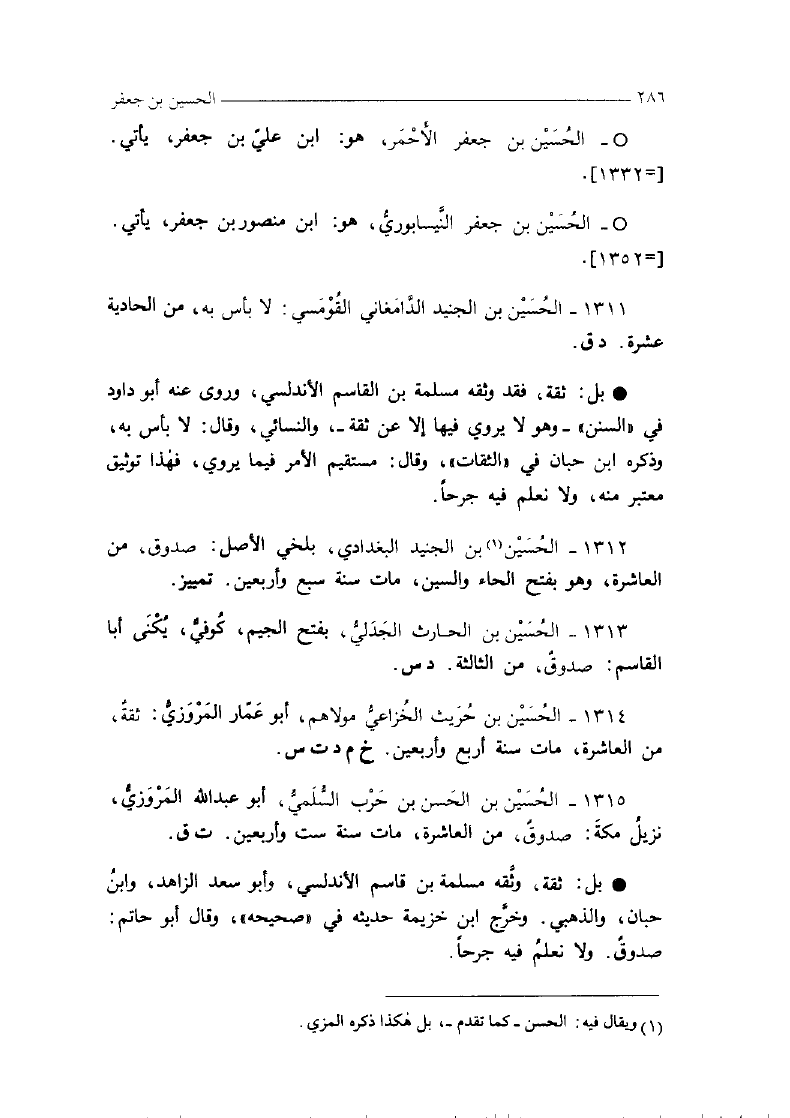 ٢٨٦ الحسين بن جعفر
○ ـ الحُسَيْن بن جعفر الأَحْمَر، هو: ابن عليّ بن جعفر، يأتي.
[=١٣٣٢].
○ ـ الحُسَيْن بن جعفر النَّيسابوريُّ، هو: ابن منصور بن جعفر، يأتي.
[=١٣٥٢].
١٣١١ ـ الحُسَيْن بن الجنيد الدَّامَغاني القُوْمَسي: لا بأس به، من الحادية
عشرة. د ق.
● بل: ثقة، فقد وثقه مسلمة بن القاسم الأندلسي، وروى عنه أبو داود
في «السنن» ـ وهو لا يروي فيها إلا عن ثقة ـ، والنسائي، وقال: لا بأس به،
وذكره ابن حبان في «الثقات»، وقال: مستقيم الأمر فيما يروي، فهٰذا توثيق
معتبر منه، ولا نعلم فيه جرحاً.
١٣١٢ ـ الحُسَيْن(١) بن الجنيد البغدادي، بلخي الأصل: صدوق، من
العاشرة، وهو بفتح الحاء والسين، مات سنة سبع وأربعين. تمييز.
١٣١٣ ـ الحُسَيْن بن الحارث الجَدَليُّ، بفتح الجيم، كُوفيٌّ، يُكْنَى أبا
القاسم: صدوقٌ، من الثالثة. د س.
١٣١٤ ـ الحُسَيْن بن حُرَيث الخُزاعيُّ مولاهم، أبو عَمَّار المَرْوَزيُّ: ثقةٌ،
من العاشرة، مات سنة أربع وأربعين. خ م د ت س.
١٣١٥ ـ الحُسَيْن بن الحَسن بن حَرْب السُّلَميُّ، أبو عبدالله المَرْوَزيُّ،
نزيلُ مكةَ: صدوقٌ، من العاشرة، مات سنة ست وأربعين. ت ق.
● بل: ثقة، وثَّقه مسلمة بن قاسم الأندلسي، وأبو سعد الزاهد، وابنُ
حبان، والذهبي. وخرَّج ابن خزيمة حديثه في «صحيحه»، وقال أبو حاتم:
صدوقٌ. ولا نعلمُ فيه جرحاً.
(١) ويقال فيه: الحسن ـ كما تقدم ـ، بل هٰكذا ذكره المزي.